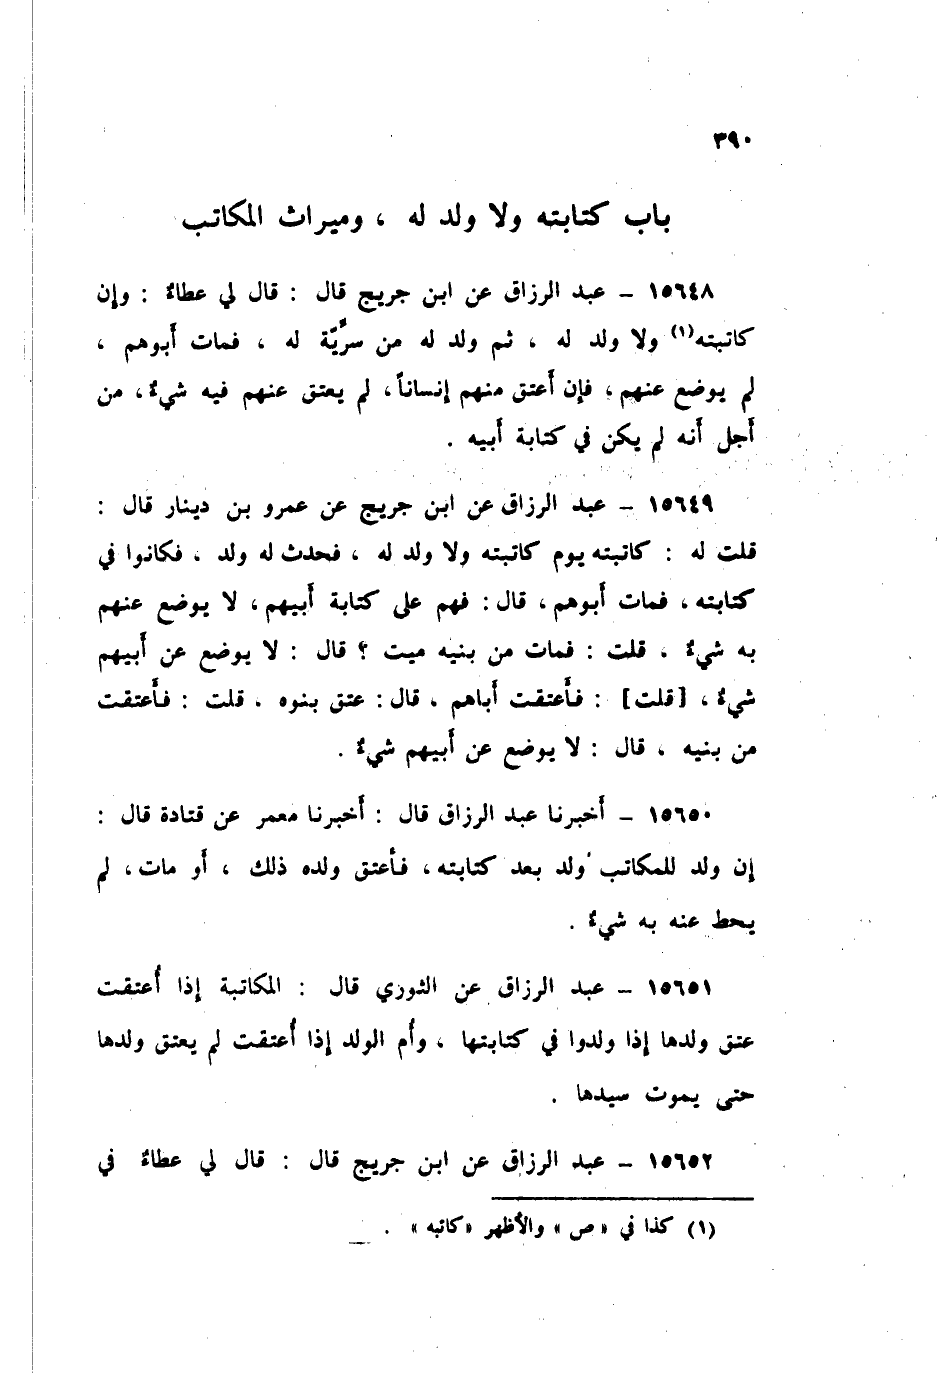 ٣٩٠
باب كتابته ولا ولد له ، وميراث المكاتب
١٥٦٤٨ – عبد الرزاق عن ابن جريج قال : قال لي عطاءٌ : وإن
كاتبته(١) ولا ولد له ، ثم ولد له من سرُّيّة له ، فمات أَبوهم ،
لم يوضع عنهم ، فإن أَعتق منهم إنساناً ، لم يعتق عنهم فيه شيءٌ ، من
أَجل أَنه لم يكن في كتابة أَبيه .
١٥٦٤٩ – عبد الرزاق عن ابن جريج عن عمرو بن دينار قال :
قلت له : كاتبته يوم كاتبته ولا ولد له ، فحدث له ولد ، فكانوا في
كتابته ، فمات أَبوهم ، قال : فهم على كتابة أَبيهم ، لا يوضع عنهم
به شيءٌ ، قلت : فمات من بنيه ميت ؟ قال : لا يوضع عن أَبيهم
شيءٌ ، [قلت] : فأَعتقت أَباهم ، قال : عتق بنوه ، قلت : فأَعتقت
من بنيه ، قال : لا يوضع عن أَبيهم شيءٌ .
١٥٦٥٠ – أَخبرنا عبد الرزاق قال : أَخبرنا معمر عن قتادة قال :
إن ولد للمكاتب ولد بعد كتابته ، فأعتق ولده ذلك ، أَو مات ، لم
يحط عنه به شيءٌ .
١٥٦٥١ – عبد الرزاق عن الثوري قال : المكاتبة إذا أُعتقت
عتق ولدها إذا ولدوا في كتابتها ، وأُم الولد إذا أُعتقت لم يعتق ولدها
حتى يموت سيدها .
١٥٦٥٢ – عبد الرزاق عن ابن جريج قال : قال لي عطاءٌ في
(١) كذا في «ص» والأَظهر «كاتبه» .